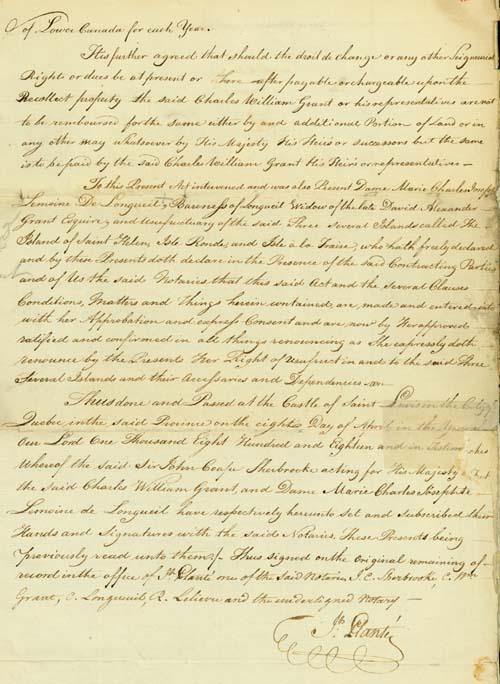 of Lower Canada for each Year.
It is further agreed that should the droit de change or any other Seigneurial
Rights or dues be at present or here after payable or chargeable upon the
Recollect property the said Charles William Grant or his representatives are not
to be remboursed for the same either by and additional Portion of Land or in
any other way whatsoever by His Majesty His Heirs or successors but the same
is to be paid by the said Charles William Grant His Heirs or representatives —
To this Present Act intervened and was also Present Dame Marie Charles Joseph
Lemoine De Longueil, Baroness of Longueil Widow of the late David Alexander
Grant Esquire, and Usufructuary of the said Three Several Islands called The
Island of Saint Helen, Isle Ronde, and Isle à la Fraise, who hath freely declared
and by these Presents doth declare in the Presence of the said Contracting Parties
and of Us the said Notaries that this said Act and the Several Clauses
Conditions, Matters and Things herein contained, are, made and entered into
with her Approbation and express Consent and are now by Her approved
ratified and confirmed in all things renouncing as She expressly doth
renounce by the Presents Her Right of Usufruct in and to the said Three
Several Islands and their Accessaries and Dependencies
Thus done and Passed at the Castle of Saint Lewis in the City of
Quebec in the said Province on the eighth Day of April in the Year of
Our Lord One Thousand Eight Hundred and Eighteen and in
Whereof the said Sir John Coape Sherbrooke acting for His Majesty
the said Charles William Grant, and Dame Marie Charles Josephte
Lemoine de Longueil have respectively hereunto set and subscribed their
Hands and Signatures with the said Notaries, These Presents being
previously read unto them./. Thus signed on the original remaining of
record in the office of Jh. Planté one of the Said Notaries, J. C. Sherbrooke, C. Wm
Grant, C. Longueuil, R. Lelievre and the undersigned Notary —
Jh. Planté